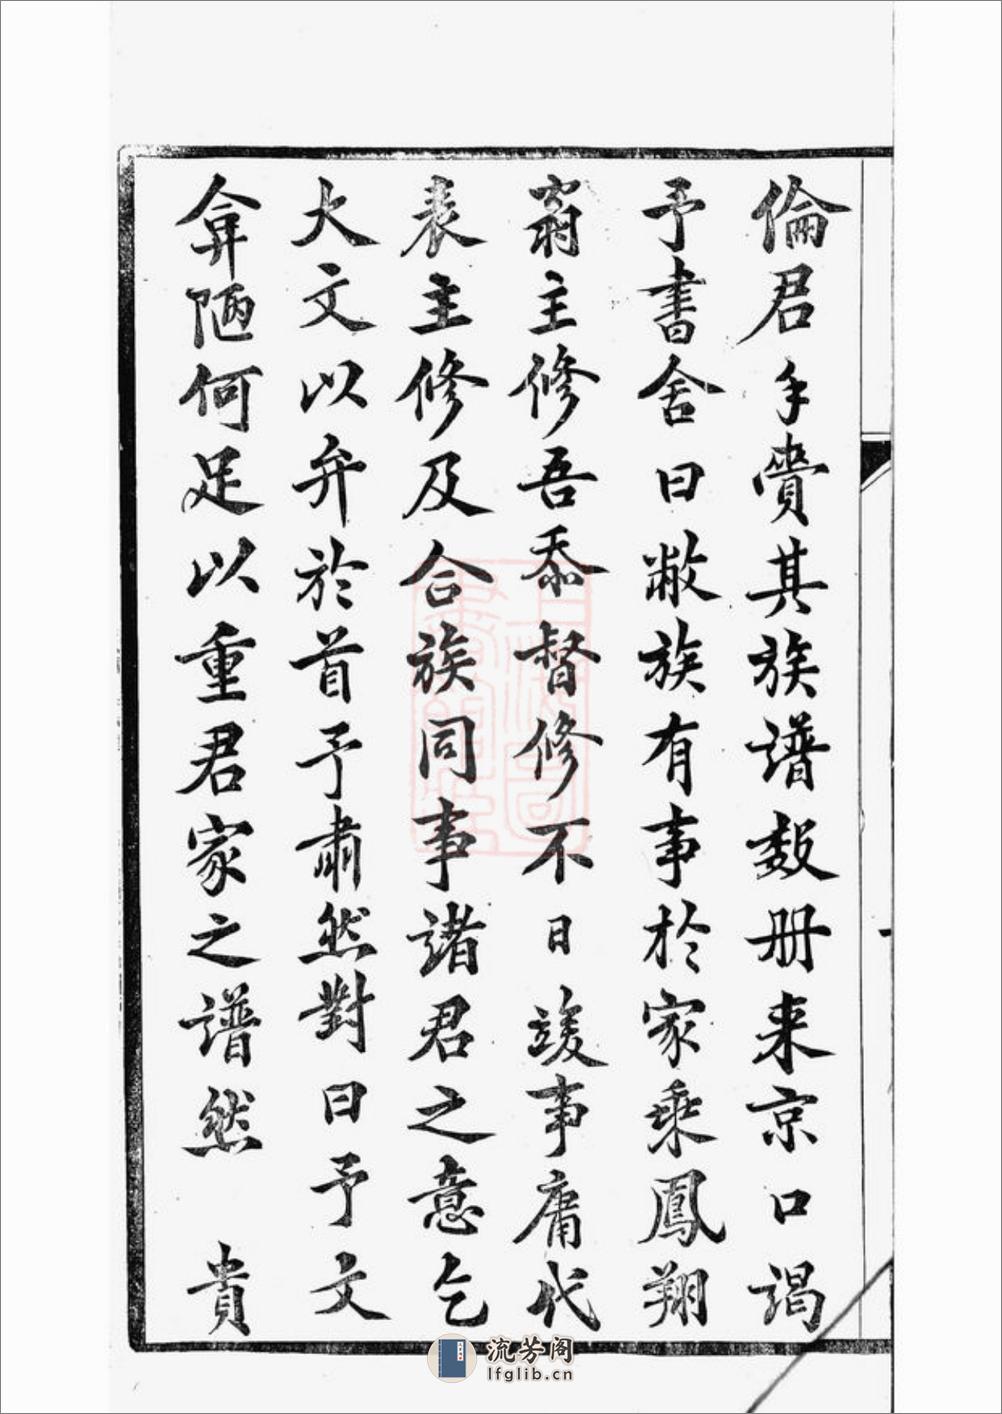 倫君手賫其族譜数册来京口谒
予書舍曰敝族有事於家乘鳳翔
翁主修吾忝督修不日竣事庸代
表主修及合族同事諸君之意乞
大文以弁於首予肅然對曰予文
弇陋何足以重君家之譜然 貴
流芳阁
lfglib.cn